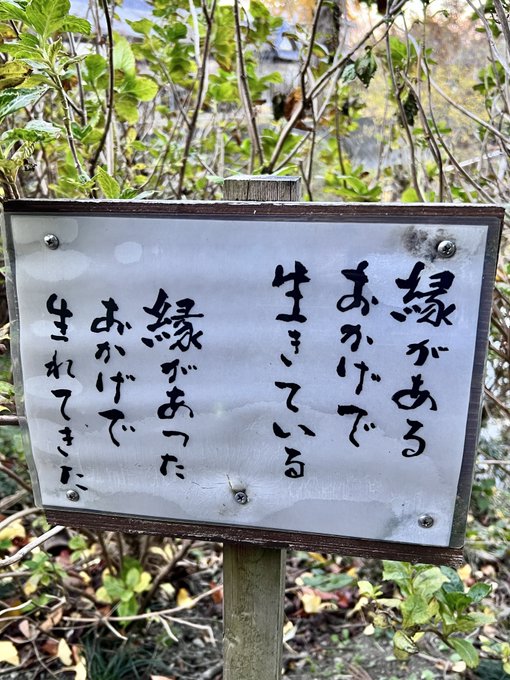 縁がある
おかげで
生きている
縁があった
おかげで
生れてきた